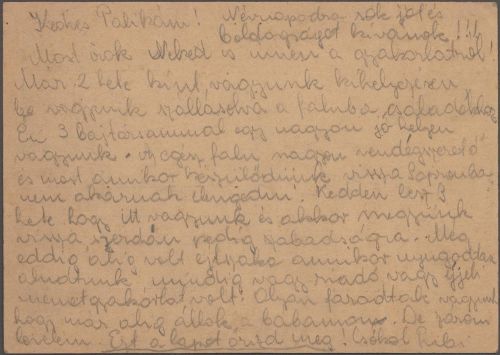 Kedves Palikám! Névnapodra sok jót és
boldogságot kivánok!!!
Most irok Neked is innen a gyakorlatról.
Már 2 hete kint vagyunk kihelyezésen
be vagyunk szállásolva a faluba, családokhoz
Én 3 bajtársammal egy nagyon jó helyen
vagyunk. Az egész falu nagyon vendégszerető
és most amikor készülődünk vissza Sopronba
nem akarnak elengedni. Kedden lesz 3
hete hogy itt vagyunk és akkor megyünk
vissza szerdán pedig szabadságra. Még
eddig alig volt éjszaka amikor nyugodtan
aludtunk, mindig vagy riadó vagy éjjeli
menetgyakorlat volt. Olyan fáradtak vagyunk
hogy már alig állok a
De zárom
levelem. Ezt a lapot őrizd meg. Csókol